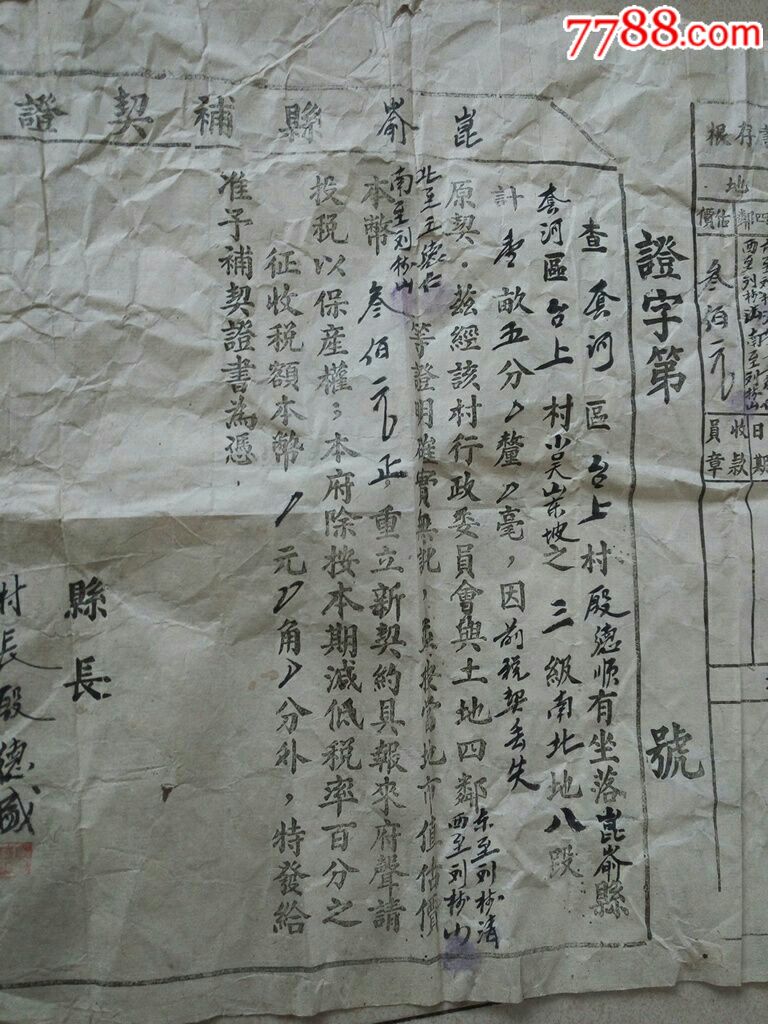 7788.com
崑崙縣補契證
證字第 號
查套河區台上村殷德順有坐落崑崙縣
套河區台上村 之三級南北地八段
計壹畝五分 釐 毫,因前税契丢失
原契.茲經該村行政委員會與土地四鄰東至刘树清
西至刘树山
北至王德仁
南至刘树山
等證明確實無訛, 當地市值估價
本幣叁佰元正,重立新契約具報來府聲請
投税以保產權;本府除按本期減低税率百分之
征收税額本幣 元 角 分外,特發給
准予補契證書為憑.
縣長
村長殷德盛
存根
地
四鄰
估價
西至刘树山
南至刘树山
叁佰元
日期
收款
員章